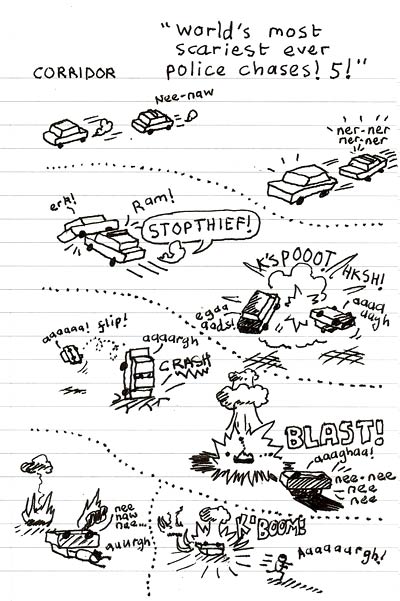 "world's most
scariest ever
CORRIDOR
police chases! 5!"
Nee-naw
ner-ner
ner-ner
erk!
Ram!
STOP THIEF!
K'SPOOOT
HKSH!
egaa
aads!
aaaa
aagh
aaaaaa!
flip!
aaaargh
CRASH
BLAST!
aaaghaa!
nee-nee
nee
nee
nee
naw
nee...
auurgh!
K'BOOM!
Aaaaaurgh!